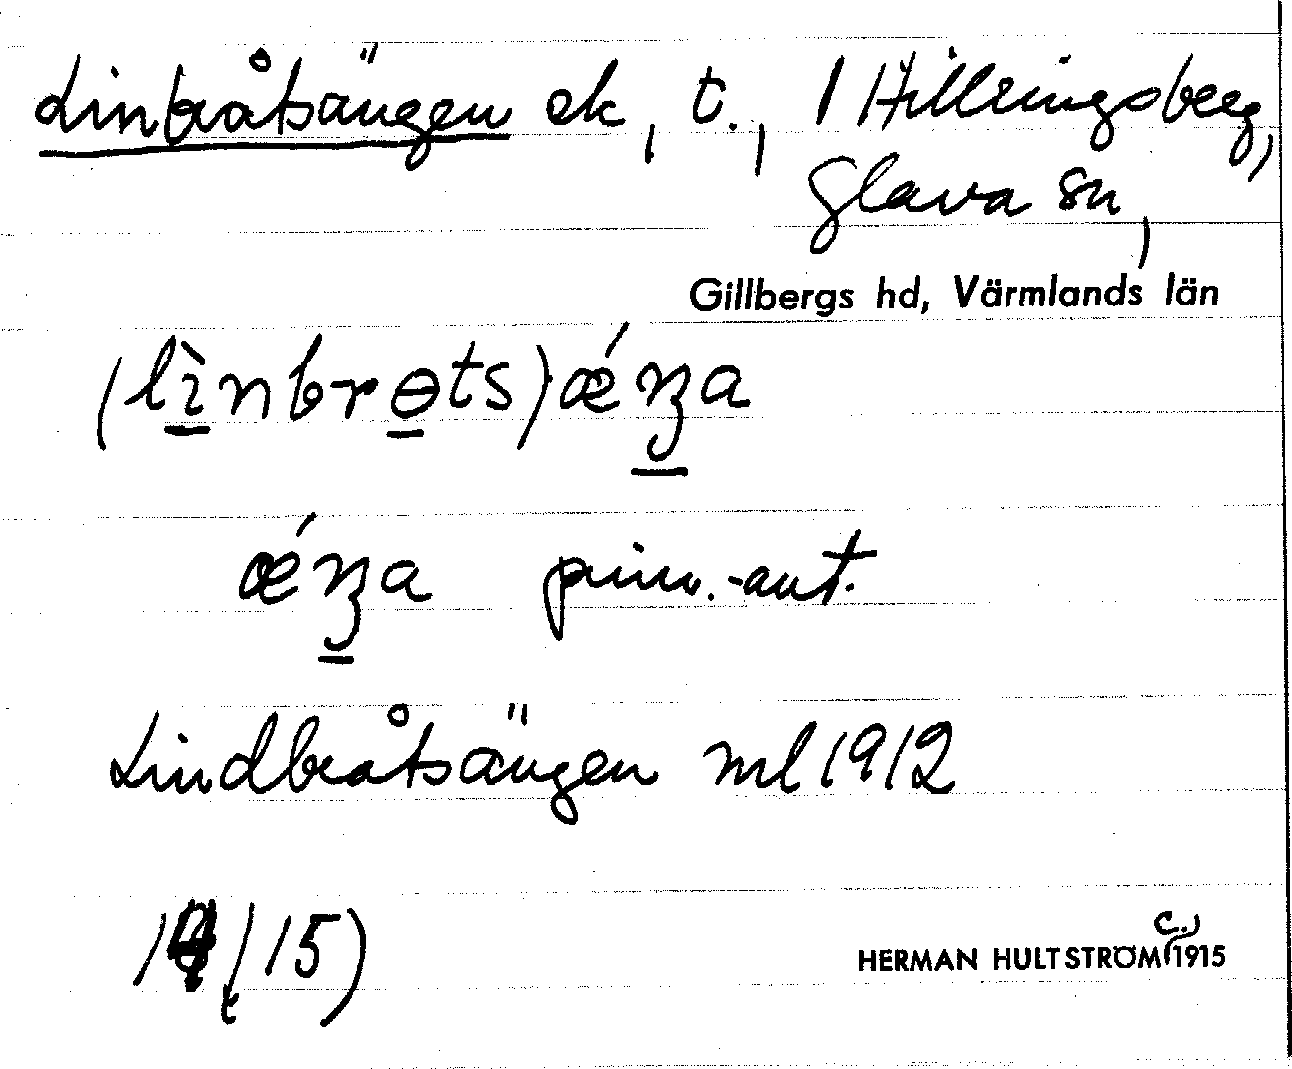 Linbråtsängen ek, t., 1 Hillringsberg,
Glava sn,
Gillbergs hd, Värmlands län
(lìnbrɵts)ǽŋa
ǽŋa prim.-aut.
Lindbråtsängen ml 1912
(15)
HERMAN HULTSTRÖM c. 1915